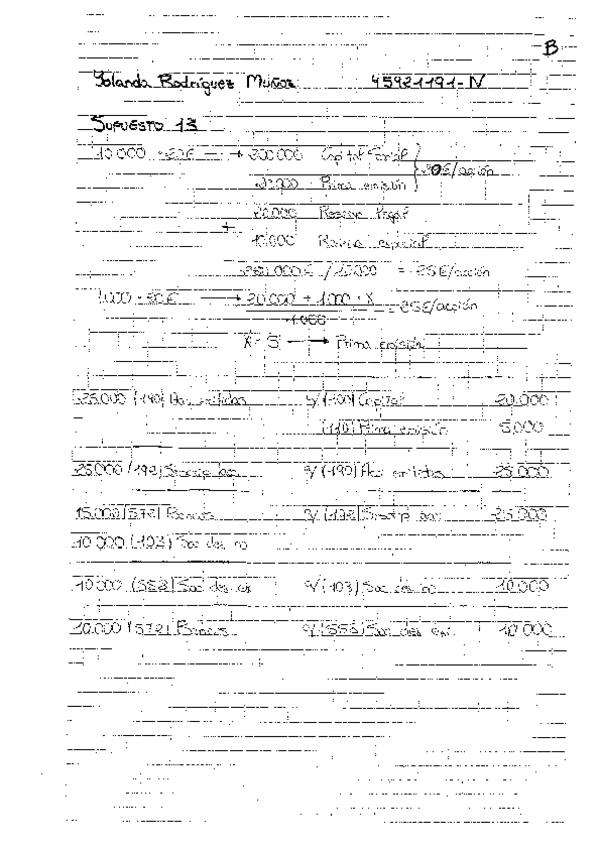 B
Yolanda Rodríguez Muñoz 45921191-N
SUPUESTO 13
10.000 · 20€ → 200.000 Capital Social
20.000 Prima emisión
€/acción
20.000 Reserva legal
+ 10.000 Reserva especial
250.000€ / 10.000 = 25€/acción
1.000 · 20€ → 20.000 + 1.000 · X = 25€/acción
1.000
X = 5 → Prima emisión
25.000 (190) Acc. emitidas a/ (100) Capital 20.000
(110) Prima emisión 5.000
25.000 (192) Suscrip. a/ (190) Acc. emitidas 25.000
15.000 (572) Bancos a/ (192) Suscrip. 25.000
10.000 (103) Soc. des. no
10.000 (558) Soc. des. a/ (103) Soc. des. no 10.000
10.000 (572) Bancos a/ (558) Soc. des. 10.000